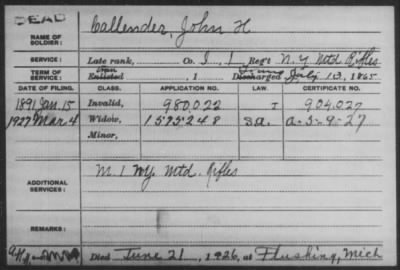 DEAD
NAME OF SOLDIER: Callender, John H
SERVICE: Late rank, Co. I, 1 Reg't N.Y. Mtd Rifles
TERM OF SERVICE: Enlisted , 1 Discharged July 13, 1865
DATE OF FILING. CLASS. APPLICATION NO. LAW. CERTIFICATE NO.
1891 Jan. 15 Invalid, 980,022 I 904,027
1927 Mar. 4 Widow, 1575248 S.a. a-5-9-27
Minor,
ADDITIONAL SERVICES: M. 1 N.Y. Mtd. Rifles
REMARKS:
Died June 21, 1926, at Flushing, Mich